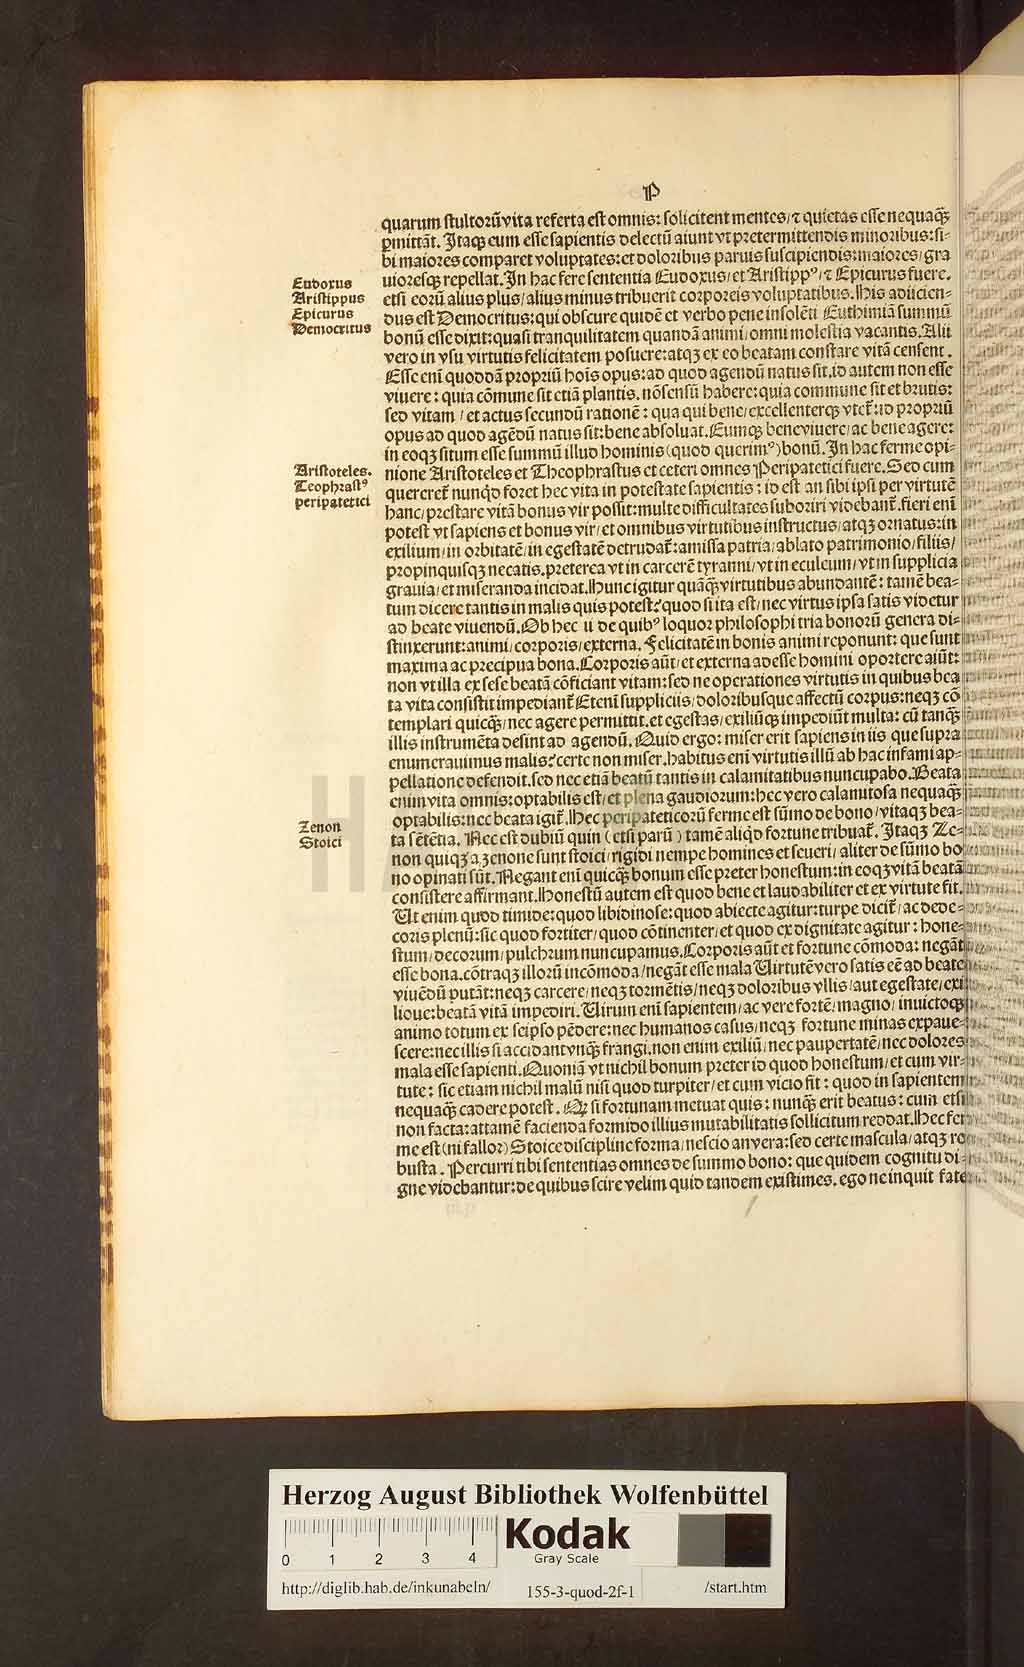 P
quarum stultorū vita referta est omnis: solicitent mentes/ ⁊ quietas esse nequaq̄
ꝑmittāt. Itaqꝫ eum esse sapientis delectū aiunt vt pretermittendis minoribus: si-
bi maiores comparet voluptates: et doloribus paruis suscipiendis: maiores/ gra
uioresqꝫ repellat. In hac fere sententia Eudoxus/ et Aristippꝰ/ ⁊ Epicurus fuere.
etsi eorū alius plus/ alius minus tribuerit corporeis voluptatibus. His adiicien-
dus est Democritus: qui obscure quidē et verbo pene insolēti Euthimiā summū
bonū esse dixit: quasi tranquilitatem quandā animi/ omni molestia vacantis. Alii
vero in vsu virtutis felicitatem posuere: atqꝫ ex eo beatam constare vitā censent.
Esse enī quoddā propriū hoīs opus: ad quod agendū natus sit. id autem non esse
viuere: quia cōmune sit etiā plantis. nō sensū habere: quia commune sit et brutis:
sed vitam/ et actus secundū rationē: qua qui bene/ excellenterqꝫ vtet̄: id propriū
opus ad quod agēdū natus sit: bene absoluat. Eumqꝫ bene viuere/ ac bene agere:
in eoqꝫ situm esse summū illud hominis (quod querimꝰ) bonū. In hac ferme opi-
nione Aristoteles et Theophrastus et ceteri omnes Peripatetici fuere. Sed cum
quereret̄ nunqd foret hec vita in potestate sapientis: id est an sibi ipsi per virtutē
hanc/ prestare vitā bonus vir possit: multe difficultates suboriri videbant̄. fieri enī
potest vt sapiens et bonus vir/ et omnibus virtutibus instructus/ atqꝫ ornatus: in
exilium/ in orbitatē/ in egestatē detrudat̄: amissa patria/ ablato patrimonio/ filiis/
propinquisqꝫ necatis. preterea vt in carcerē tyranni/ vt in eculeum/ vt in supplicia
grauia/ et miseranda incidat. Hunc igitur quāq̄ virtutibus abundantē: tamē bea-
tum dicere tantis in malis quis potest? quod si ita est/ nec virtus ipsa satis videtur
ad beate viuendū. Ob hec ii de quibꝰ loquor philosophi tria bonorū genera di-
stinxerunt: animi/ corporis/ externa. Felicitatē in bonis animi reponunt: que sunt
maxima ac precipua bona. Corporis aūt/ et externa adesse homini oportere aiūt:
non vt illa ex sese beatā cōficiant vitam: sed ne operationes virtutis in quibus bea
ta vita consistit impediant̄ Etenī suppliciis/ doloribusque affectū corpus: neqꝫ cō
templari quicq̄/ nec agere permittit. et egestas/ exiliūqꝫ impediūt multa: cū tanq̄
illis instrumēta desint ad agendū. Quid ergo: miser erit sapiens in iis que supra
enumerauimus malis? certe non miser. habitus enī virtutis illū ab hac infami ap-
pellatione defendit. sed nec etiā beatū tantis in calamitatibus nuncupabo. Beata
enim vita omnis: optabilis est/ et plena gaudiorum: hec vero calamitosa nequaq̄
optabilis: nec beata igit̄. Hec peripateticorū ferme est sūmo de bono/ vitaqꝫ bea-
ta sētētia. Nec est dubiū quin (etsi parū) tamē aliqd fortune tribuat̄. Itaqꝫ Ze-
non quiqꝫ a zenone sunt stoici/ rigidi nempe homines et seueri/ aliter de sūmo bo
no opinati sūt. Negant enī quicq̄ bonum esse preter honestum: in eoqꝫ vitā beatā
consistere affirmant. Honestū autem est quod bene et laudabiliter et ex virtute fit.
Ut enim quod timide: quod libidinose: quod abiecte agitur: turpe dicit̄/ ac dede-
coris plenū: sic quod fortiter/ quod cōtinenter/ et quod ex dignitate agitur: hone-
stum/ decorum/ pulchrum nuncupamus. Corporis aūt et fortune cōmoda: negāt
esse bona. cōtraqꝫ illorū incōmoda/ negāt esse mala Virtutē vero satis eē ad beate
viuēdū putāt: neqꝫ carcere/ neqꝫ tormētis/ neqꝫ doloribus vllis/ aut egestate/ exi
lioue: beatā vitā impediri. Virum enī sapientem/ ac vere fortē/ magno/ inuictoqꝫ
animo totum ex seipso pēdere: nec humanos casus/ neqꝫ fortune minas expaue-
scere: nec illis si accidant vnq̄ frangi. non enim exiliū/ nec paupertatē/ nec dolores
mala esse sapienti. Quoniā vt nichil bonum preter id quod honestum/ et cum vir-
tute: sic etiam nichil malū nisi quod turpiter/ et cum vicio fit: quod in sapientem
nequaq̄ cadere potest. Qꝫ si fortunam metuat quis: nunq̄ erit beatus: cum etsi
non facta: attamē facienda formido illius mutabilitatis sollicitum reddat. Hec fer
me est (ni fallor) Stoice discipline forma/ nescio an vera: sed certe mascula/ atqꝫ ro
busta. Percurri tibi sententias omnes de summo bono: que quidem cognitu di-
gne videbantur: de quibus scire velim quid tandem existimes. ego ne inquit fate
Eudoxus
Aristippus
Epicurus
Democritus
Aristoteles.
Teophrastꝰ
peripatetici
Zenon
Stoici
HAB
Herzog August Bibliothek Wolfenbüttel
0 1 2 3 4
Kodak
Gray Scale
http://diglib.hab.de/inkunabeln/ 155-3-quod-2f-1 /start.htm